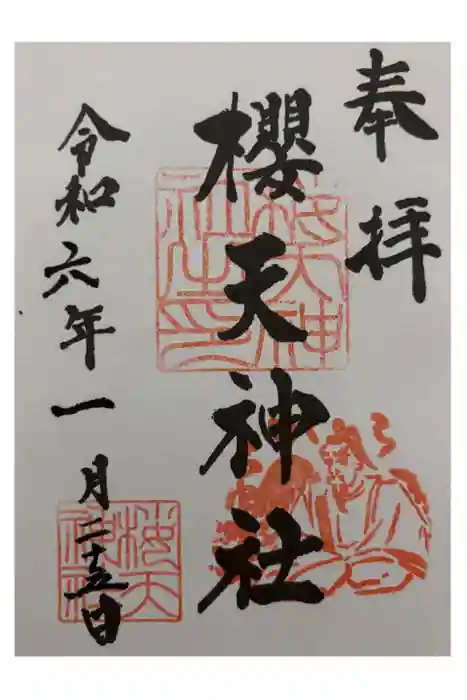 奉拝
櫻天神社
令和六年一月二十五日
桜天神社之印
桜天神社